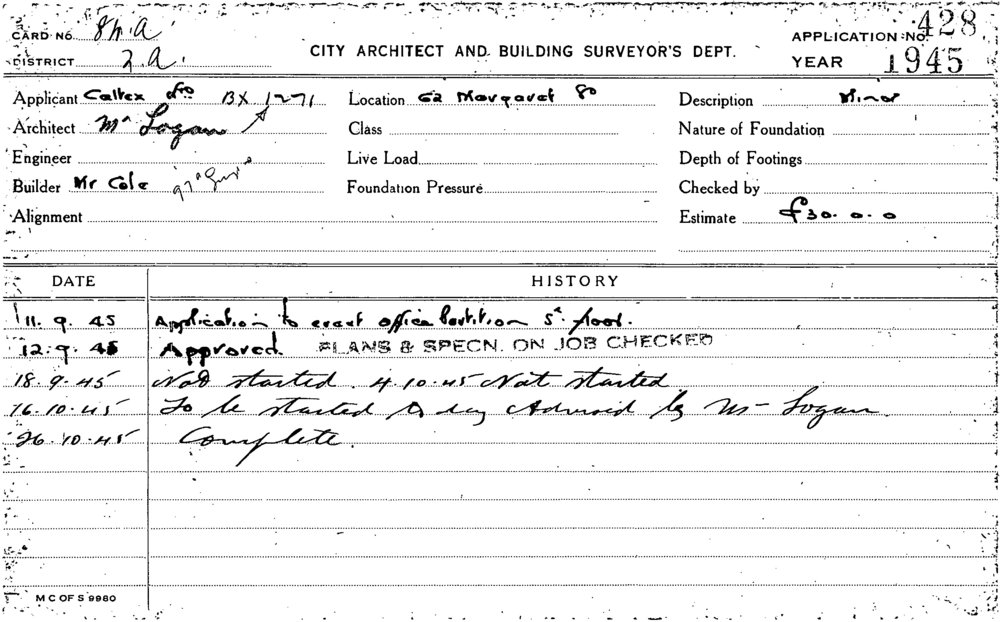 CARD No. 84.A
DISTRICT 2.A.
CITY ARCHITECT AND BUILDING SURVEYOR'S DEPT.
APPLICATION No. 428
YEAR 1945
Applicant Caltex BX 1271
Location 62 Margaret
Description Minor
Architect Mr Logan
Class
Nature of Foundation
Engineer
Live Load
Depth of Footings
Builder Mr Cole
Foundation Pressure
Checked by
Alignment
Estimate £30.0.0
DATE HISTORY
11.9.45 Application to erect office Partition 5th floor.
12.9.45 Approved. PLANS & SPECN. ON JOB CHECKED
18.9.45 Not started. 4.10.45 Not started
16.10.45 To be started to day Advised by Mr Logan.
26.10.45 Complete.
M C OF S 9980